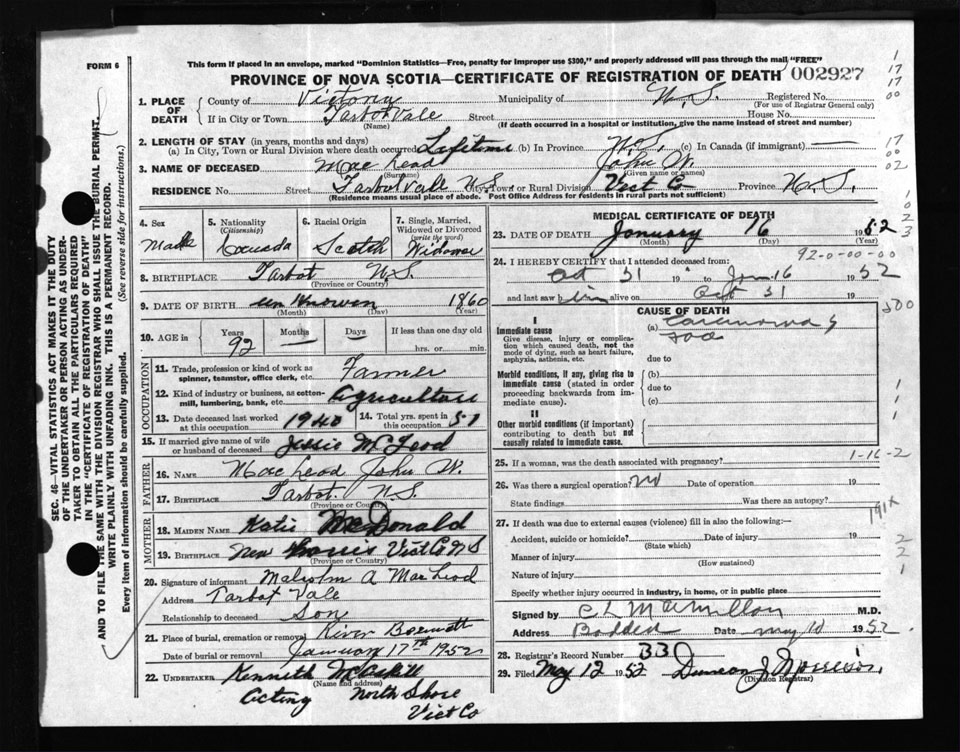 FORM 6
This form if placed in an envelope, marked "Dominion Statistics—Free, penalty for improper use $300," and properly addressed will pass through the mail "FREE"
PROVINCE OF NOVA SCOTIA—CERTIFICATE OF REGISTRATION OF DEATH 002927
1. PLACE OF DEATH
County of Victoria Municipality of N.S. Registered No.
(For use of Registrar General only)
If in City or Town Tarbot Vale Street House No.
(Name) (If death occurred in a hospital or institution, give the name instead of street and number)
2. LENGTH OF STAY (in years, months and days)
(a) In City, Town or Rural Division where death occurred Lifetime (b) In Province (c) In Canada (if immigrant)
3. NAME OF DECEASED Mac Leod John W.
(Surname) (Given name or names)
RESIDENCE No. Street Tarbot Vale N.S. City, Town or Rural Division Vict Co Province N.S.
(Residence means usual place of abode. Post Office Address for residents in rural parts not sufficient)
4. Sex Male
5. Nationality (Citizenship) Canada
6. Racial Origin Scotch
7. Single, Married, Widowed or Divorced (write the word) Widower
8. BIRTHPLACE Tarbot N.S.
(Province or Country)
9. DATE OF BIRTH un Known 1860
(Month) (Day) (Year)
10. AGE in Years 92 Months Days If less than one day old
hrs. or min.
OCCUPATION
11. Trade, profession or kind of work as spinner, teamster, office clerk, etc. Farmer
12. Kind of industry or business, as cotten-mill, lumbering, bank, etc. Agriculture
13. Date deceased last worked at this occupation 1940
14. Total yrs. spent in this occupation
15. If married give name of wife or husband of deceased Jessie McLeod
FATHER
16. NAME Mac Leod John W.
17. BIRTHPLACE Tarbot. N.S.
(Province or Country)
MOTHER
18. MAIDEN NAME Katie McDonald
19. BIRTHPLACE New Vict Co N S
(Province or Country)
20. Signature of informant Malcolm A MacLeod
Address Tarbot Vale
Relationship to deceased Son
21. Place of burial, cremation or removal River
Date of burial or removal January 17th 1952
22. UNDERTAKER Kenneth McAskill
(Name and address)
Acting North Shore
Vict Co
MEDICAL CERTIFICATE OF DEATH
23. DATE OF DEATH January 16 1952
(Month) (Day) (Year)
92-0-00-00
24. I HEREBY CERTIFY that I attended deceased from:
Oct 31 to Jan 16 1952
and last saw him alive on Oct 31 19
CAUSE OF DEATH
I
Immediate cause
Give disease, injury or complication which caused death, not the mode of dying, such as heart failure, asphyxia, asthenia, etc.
(a) Carcinoma of
due to
Morbid conditions, if any, giving rise to immediate cause (stated in order proceeding backwards from immediate cause).
(b)
due to
(c)
II
Other morbid conditions (if important) contributing to death but not causally related to immediate cause.
25. If a woman, was the death associated with pregnancy? 1-16-2
26. Was there a surgical operation? no Date of operation 19
State findings Was there an autopsy?
27. If death was due to external causes (violence) fill in also the following:—
Accident, suicide or homicide? Date of injury 19
(State which)
Manner of injury
(How sustained)
Nature of injury
Specify whether injury occurred in industry, in home, or in public place
Signed by C L MacMillan M.D.
Address Baddeck Date May 10 1952
28. Registrar's Record Number 330
29. Filed May 12 1952 Duncan J Morrison
(Division Registrar)
SEC. 46—VITAL STATISTICS ACT MAKES IT THE DUTY
OF THE UNDERTAKER OR PERSON ACTING AS UNDER-
TAKER TO OBTAIN ALL THE PARTICULARS REQUIRED
IN THE "CERTIFICATE OF REGISTRATION OF DEATH"
AND TO FILE THE SAME WITH THE DIVISION REGISTRAR WHO SHALL ISSUE THE BURIAL PERMIT.
WRITE PLAINLY WITH UNFADING INK. THIS IS A PERMANENT RECORD.
Every item of information should be carefully supplied. (See reverse side for instructions.)